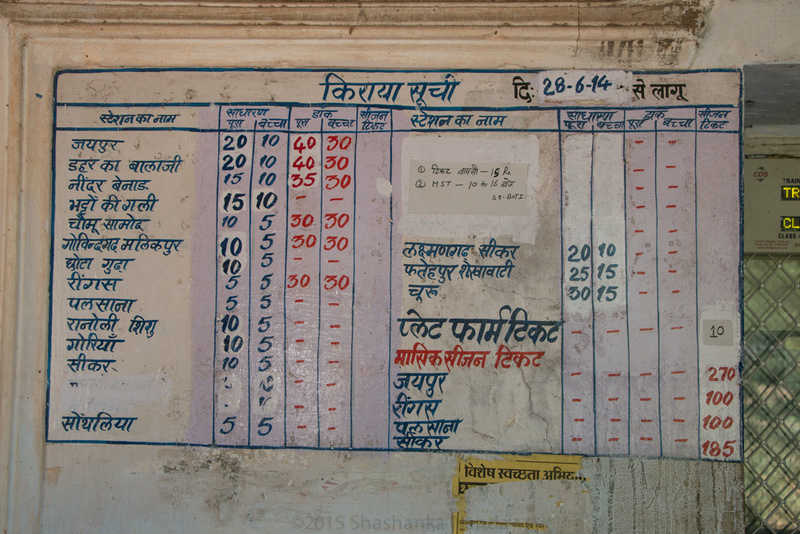 किराया सूची दि: 28-6-14 से लागू
स्टेशन का नाम साधारण डाक सीजन टिकट स्टेशन का नाम साधारण डाक सीजन टिकट
पूरा बच्चा पूरा बच्चा पूरा बच्चा पूरा बच्चा
जयपुर 20 10 40 30 - -
डहर का बालाजी 20 10 40 30 - -
नींदर बेनाड 15 10 35 30 ① टिकट वापसी - 15 Rs - -
भट्टों की गली 15 10 - - ② MST - 10 to 16 बजे - -
चौमू सामोद 10 5 30 30 - -
गोविन्दगढ़ मलिकपुर 10 5 30 30 लक्ष्मणगढ़ सीकर 20 10 - -
छोटा गुढा 10 5 - - फतेहपुर शेखावाटी 25 15 - -
रींगस 5 5 30 30 चूरू 30 15 - -
पलसाना 5 5 - -
रानोली शिशु 10 5 - - प्लेट फार्म टिकट - - - - 10
गोरियाँ 10 5 - - मासिक सीजन टिकट
सीकर 10 5 - - जयपुर - - - - 270
" - - रींगस - - - - 100
- - पलसाना - - - - 100
सोंथलिया 5 5 - - सीकर - - - - 185
CDS
TRAI
TR
CL
CLASS
विशेष स्वच्छता अभि
©2015 Shashanka